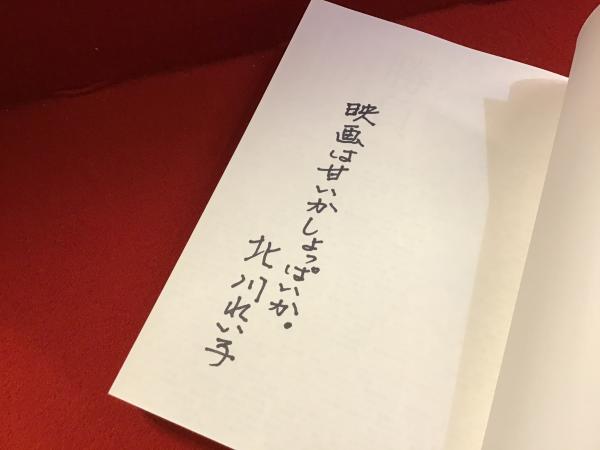 映画は甘いかしょっぱいか。
北川れい子